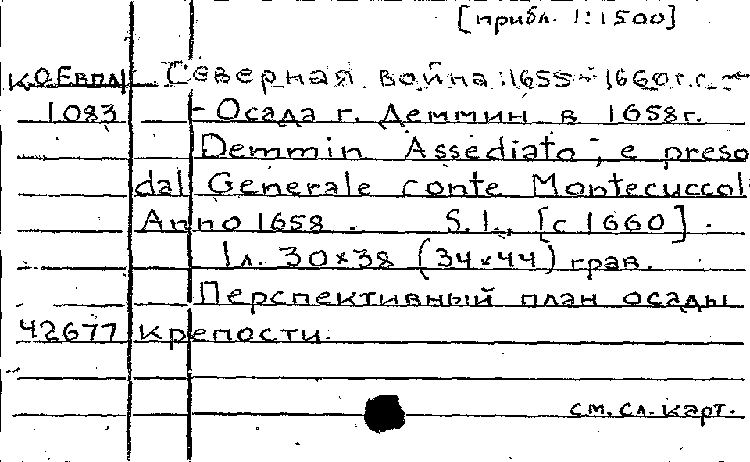 [прибл. 1:1500]
К.О.Евпл Северная война 1655-1660 г.г. -
1083 - Осада г. Деммин в 1658г.
Demmin Assediato, e preso
dal Generale conte Montecuccol
Anno 1658. S.l., [c 1660].
1л. 30×38 (34×44) грав.
Перспективный план осады
42677 крепости.
см. сл. карт.